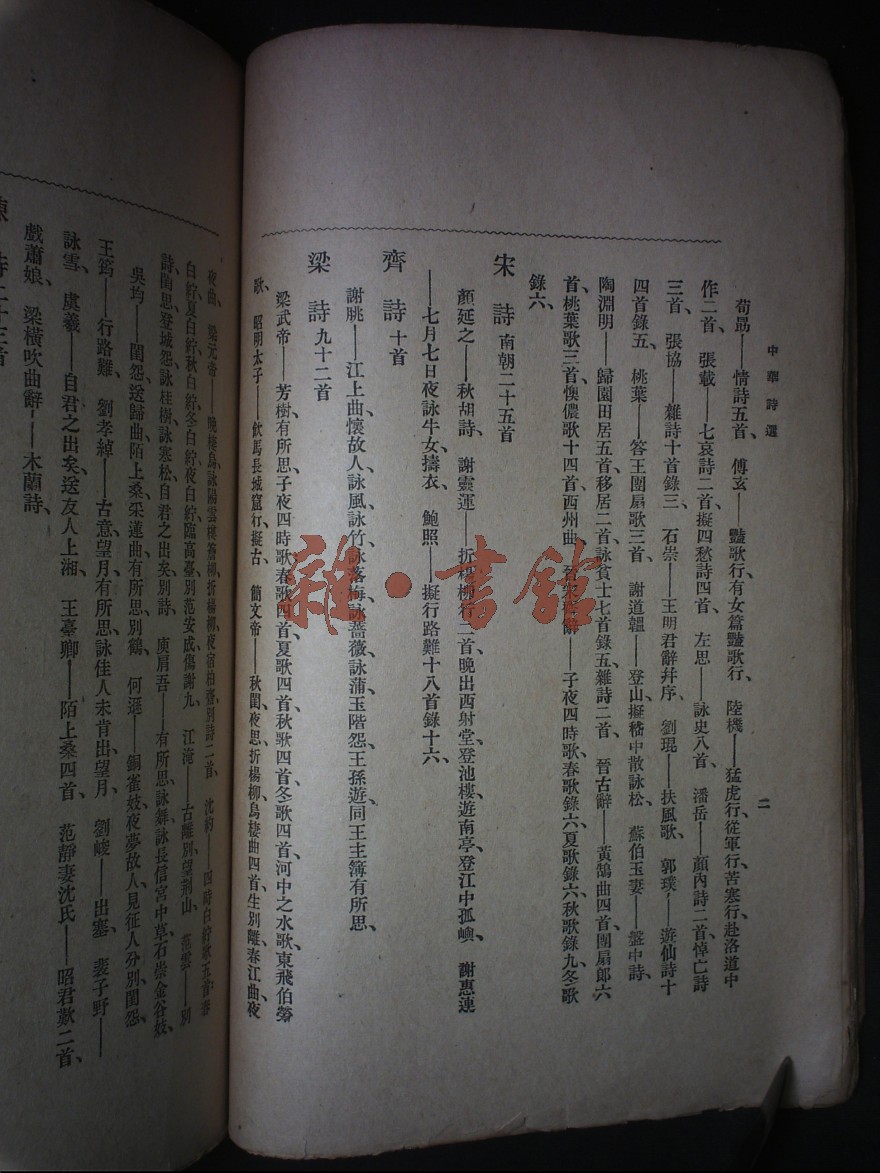 中華詩選
二
荀勗——情詩五首、傅玄——豔歌行有女篇豔歌行、陸機——猛虎行、從軍行、苦寒行、赴洛道中
作二首、張載——七哀詩二首、擬四愁詩四首、左思——詠史八首、潘岳——顏內詩二首、悼亡詩
三首、張協——雜詩十首錄三、石崇——王明君辭幷序、劉琨——扶風歌、郭璞——遊仙詩十
四首錄五、桃葉——答王團扇歌三首、謝道韞——登山、擬嵇中散詠松、蘇伯玉妻——盤中詩、
陶淵明——歸園田居五首、移居二首、詠貧士七首錄五、雜詩二首、晉古辭——黃鵠曲四首、團扇郎六
首、桃葉歌三首、懊儂歌十四首、西州曲、晉宋齊辭——子夜四時歌、春歌錄六、夏歌錄六、秋歌錄九、冬歌
錄六、
宋詩 南朝二十五首
顏延之——秋胡詩、謝靈運——折楊柳行二首、晚出西射堂、登池樓、遊南亭、登江中孤嶼、謝惠連
——七月七日夜詠牛女、擣衣、鮑照——擬行路難十八首錄十六、
齊詩 十首
謝朓——江上曲、懷故人、詠風、詠竹、詠落梅、詠薔薇、詠蒲、玉階怨、王孫遊、同王主簿有所思、
梁詩 九十二首
梁武帝——芳樹、有所思、子夜四時歌、春歌四首、夏歌四首、秋歌四首、冬歌四首、河中之水歌、東飛伯勞
歌、昭明太子——飲馬長城窟行、擬古、簡文帝——秋閨夜思、折楊柳、烏棲曲四首、生別離、春江曲、夜
夜曲、梁元帝——晚棲烏、詠陽雲樓簷柳、折楊柳、夜宿柏齋、別詩二首、沈約——四時白紵歌五首、春
白紵、夏白紵、秋白紵、冬白紵、夜白紵、臨高臺、別范安成、傷謝朓、江淹——古離別、望荊山、范雲——別
詩、閨思、登城怨、詠桂樹、詠寒松、自君之出矣、別詩、庾肩吾——有所思、詠舞、詠長信宮中草、石崇金谷妓、
吳均——閨怨、送歸曲、陌上桑、采蓮曲、有所思、別鶴、何遜——銅雀妓、夜夢故人、見征人分別、閨怨、
王筠——行路難、劉孝綽——古意、望月有所思、詠佳人未肯出、望月、劉峻——出塞、裴子野——
詠雪、虞羲——自君之出矣、送友人上湘、王臺卿——陌上桑四首、范靜妻沈氏——昭君歎二首、
戲蕭娘、梁橫吹曲辭——木蘭詩、
陳詩二十三首
雜·書館